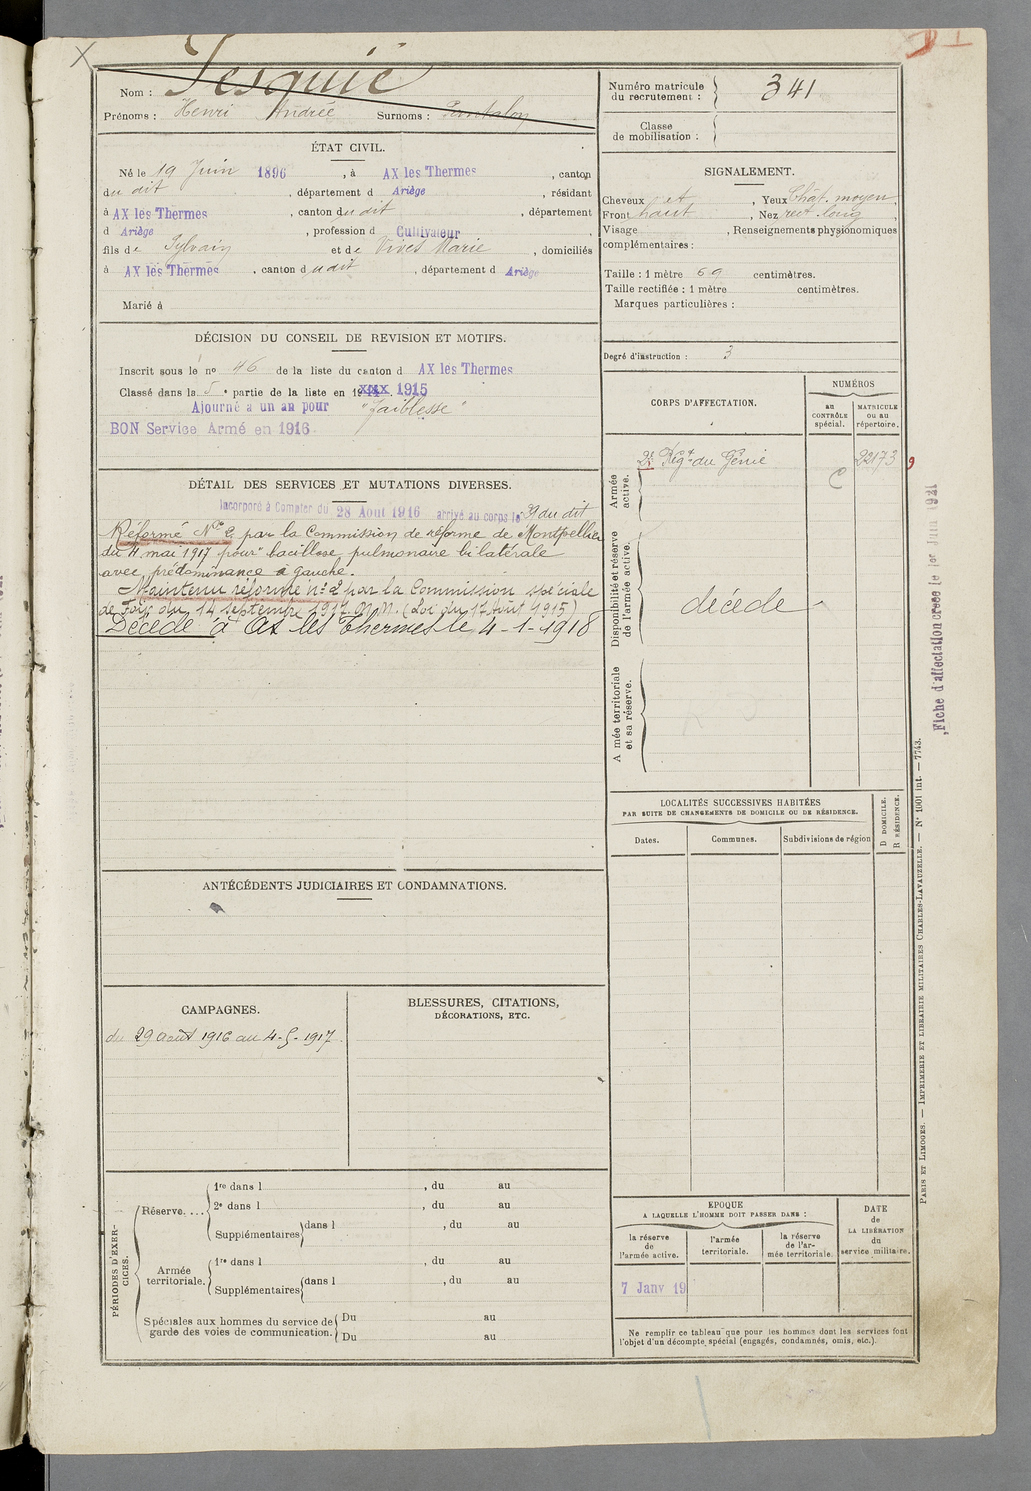 Nom : Jesquié
Prénoms : Henri Andrée Surnoms : Pantalon
Numéro matricule du recrutement : 341
Classe de mobilisation :
ÉTAT CIVIL.
Né le 19 Juin 1896, à AX les Thermes, canton
du dit, département d Ariège, résidant
à AX les Thermes, canton du dit, département
d Ariège, profession d Cultivateur
fils de Sylvain et de Vives Marie, domiciliés
à AX les Thermes, canton du dit, département d Ariège
Marié à
SIGNALEMENT.
Cheveux et, Yeux Chât. moyen,
Front haut, Nez rect. long,
Visage , Renseignements physionomiques
complémentaires :
Taille : 1 mètre 69 centimètres.
Taille rectifiée : 1 mètre centimètres.
Marques particulières :
Degré d'instruction : 3
DÉCISION DU CONSEIL DE REVISION ET MOTIFS.
Inscrit sous le nº 46 de la liste du canton d AX les Thermes
Classé dans la 5e partie de la liste en 19 1915
Ajourné a un an pour "faiblesse"
BON Service Armé en 1916
CORPS D'AFFECTATION.
NUMÉROS
au CONTRÔLE spécial.
MATRICULE ou au répertoire.
Armée active.
2e Régt du Génie
22173
Disponibilité et réserve de l'armée active.
décédé
A mée territoriale et sa réserve.
DÉTAIL DES SERVICES ET MUTATIONS DIVERSES.
Incorporé à Compter du 28 Aout 1916 arrivé au corps le 29 du dit
Réformé No 2 par la Commission de réforme de Montpellier
du 4 mai 1917 pour "bacillose pulmonaire bilatérale
avec prédominance à gauche.
Maintenu réformé n: 2 par la Commission spéciale
de Foix du 14 septembre 1917. (Loi du 17 Aout 1915)
Décédé à Ax les Thermes le 4-1-1918
Fiche d'affectation créée le 1er Juin 1921
LOCALITÉS SUCCESSIVES HABITÉES
PAR SUITE DE CHANGEMENTS DE DOMICILE OU DE RÉSIDENCE.
D DOMICILE.
R RÉSIDENCE.
Dates. Communes. Subdivisions de région
ANTÉCÉDENTS JUDICIAIRES ET CONDAMNATIONS.
CAMPAGNES.
du 29 août 1916 au 4-5-1917.
BLESSURES, CITATIONS,
DÉCORATIONS, ETC.
PÉRIODES D'EXER-
CICES.
Réserve. ...
1re dans l , du au
2e dans l , du au
Supplémentaires dans l , du au
Armée territoriale.
1re dans l , du au
Supplémentaires dans l , du au
Spéciales aux hommes du service de garde des voies de communication.
Du au
Du au
EPOQUE
A LAQUELLE L'HOMME DOIT PASSER DANS :
la réserve de l'armée active.
l'armée territoriale.
la réserve de l'ar-
mée territoriale.
DATE de LA LIBÉRATION du service militaire.
7 Janv 19
Ne remplir ce tableau que pour les hommes dont les services font
l'objet d'un décompte spécial (engagés, condamnés, omis, etc.).
PARIS ET LIMOGES. — IMPRIMERIE ET LIBRAIRIE MILITAIRES CHARLES-LAVAUZELLE. — Nº 1001 int. — 7743.